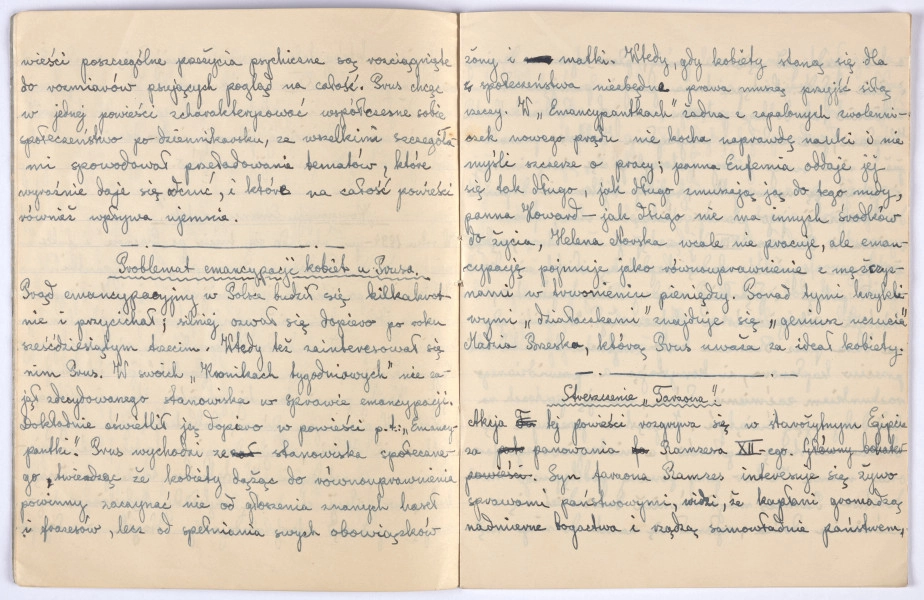 wieści poszczególne przeżycia psychiczne są rozciągnięte
do rozmiarów psujących pogląd na całość. Prus chcąc
w jednej powieści scharakteryzować współczesne sobie
społeczeństwo po dziennikarsku, ze wszelkimi szczegóła
mi spowodował przeładowanie tematów, które
wyraźnie daje się odczuć, i które na całość powieści
również wpływa ujemnie.
Problemat emancypacji kobiet u Prusa.
Prąd emancypacyjny w Polsce budził się kilkakrot-
nie i przycichał; silniej ozwał się dopiero po roku
sześćdziesiątym trzecim. Wtedy też zainteresował się
nim Prus. W swoich „Kronikach tygodniowych" nie za-
jął zdecydowanego stanowiska w sprawie emancypacji.
Dokładnie oświetlił ją dopiero w powieści p.t.: „Emancy-
pantki". Prus wychodzi ze stanowiska społeczne-
go, twierdząc że kobiety dążąc do równouprawnienia
powinny zaczynać nie od głoszenia znanych haseł
i frazesów, lecz od spełniania swych obowiązków
żony i matki. Wtedy, gdy kobiety staną się dla
społeczeństwa niezbędne prawa muszą przyjść siłą
rzeczy. W „Emancypantkach" żadna z zapalonych zwolenni-
czek nowego prądu nie kocha naprawdę nauki i nie
myśli szczerze o pracy; panna Eufemia oddaje jej
się tak długo, jak długo zmuszają ją do tego nudy,
panna Howard – jak długo nie ma innych środków
do życia, Helena Norska wcale nie pracuje, ale eman-
cypację pojmuje jako równouprawnienie z mężczyz-
nami w trwonieniu pieniędzy. Ponad tymi krzykli-
wymi „działaczkami" znajduje się „geniusz uczucia"
Madzia Brzeska, którą Prus uważa za ideał kobiety.
Streszczenie „Faraona":
Akcja tej powieści rozgrywa się w starożytnym Egipcie
za panowania Ramzesa XII-ego. Główny bohater
powieści. Syn faraona Ramzes interesuje się żywo
sprawami państwowymi, widzi, że kapłani gromadzą
nadmierne bogactwa i rządzą samowładnie państwem,